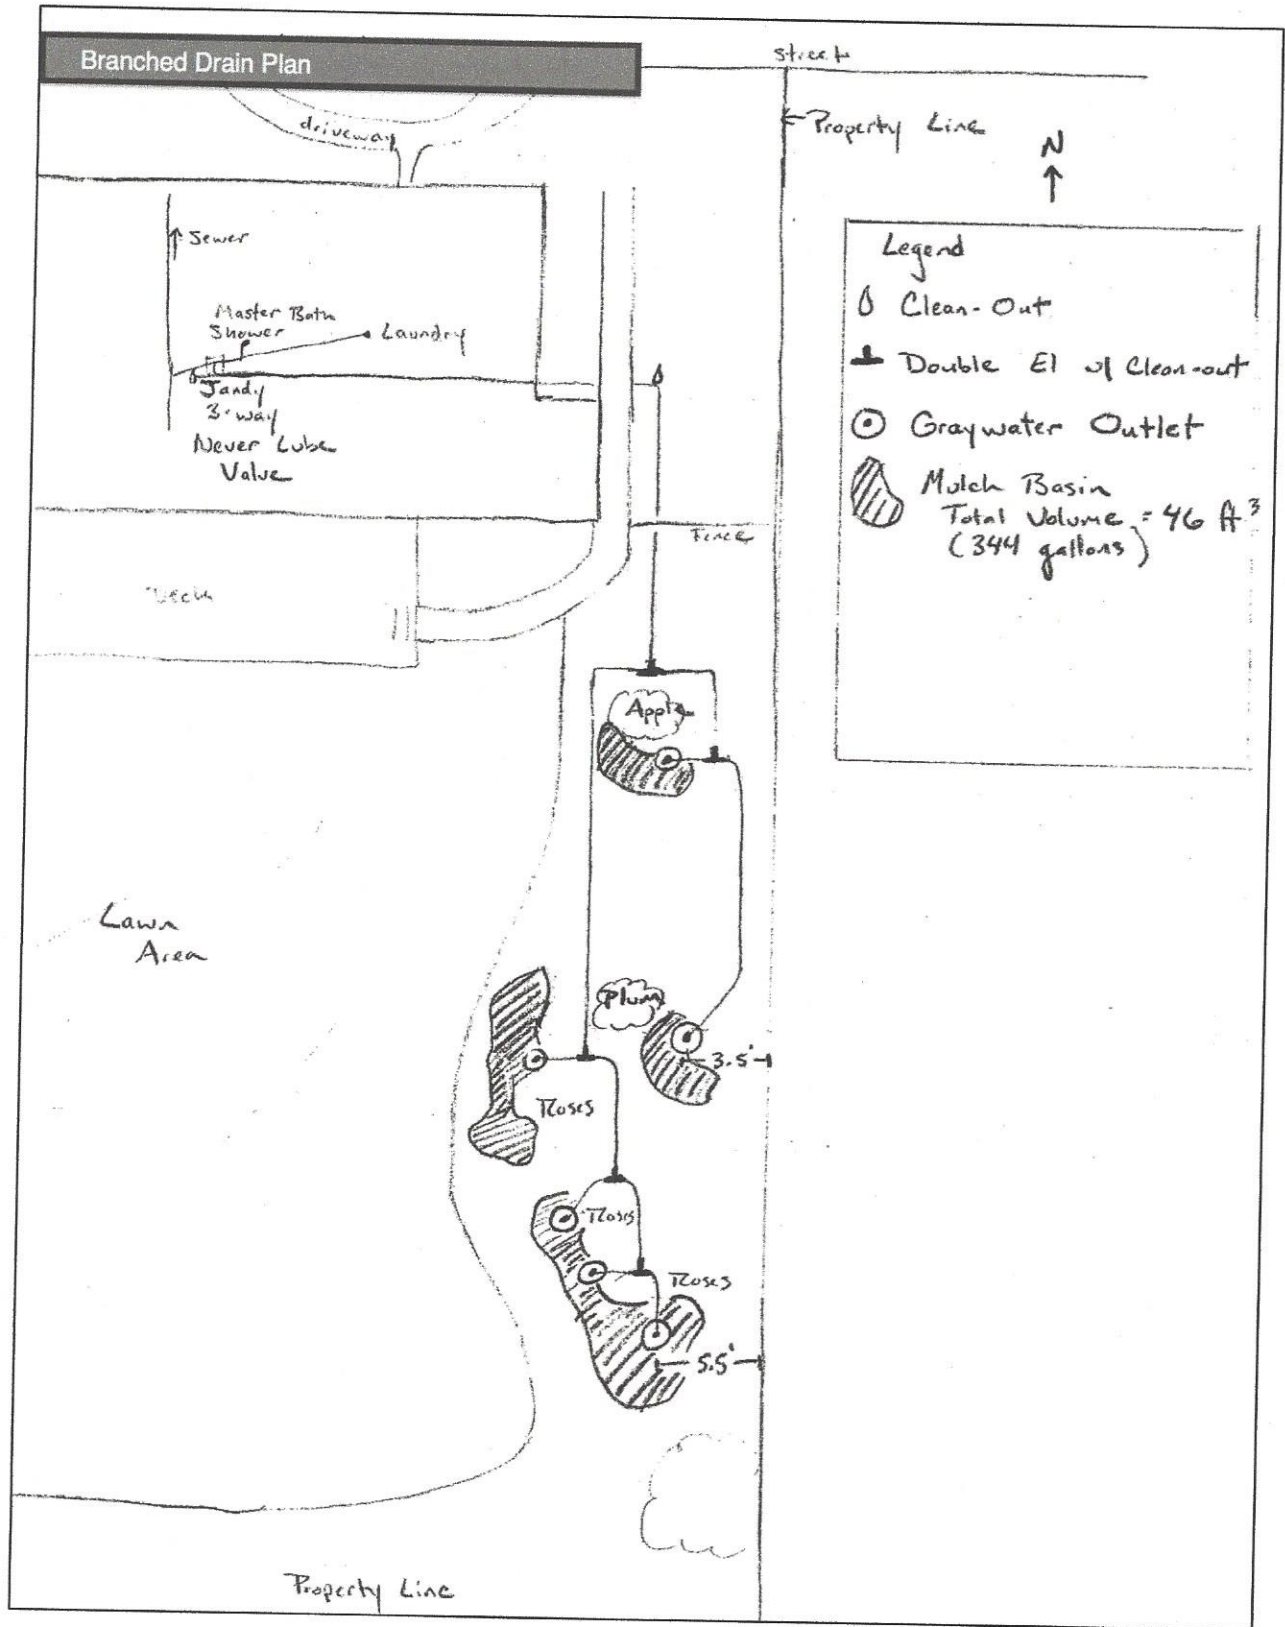 Branched Drain Plan
Street
driveway
Property Line
N
Sewer
Master Bath
Shower
Laundry
Jandy
3-way
Never Lube
Valve
Legend
Clean-Out
Double El w/ Clean-out
Graywater Outlet
Mulch Basin
Total Volume = 46 ft³
(344 gallons)
Fence
Deck
Apple
Lawn
Area
Plum
3.5'
Roses
Roses
Roses
5.5'
Property Line